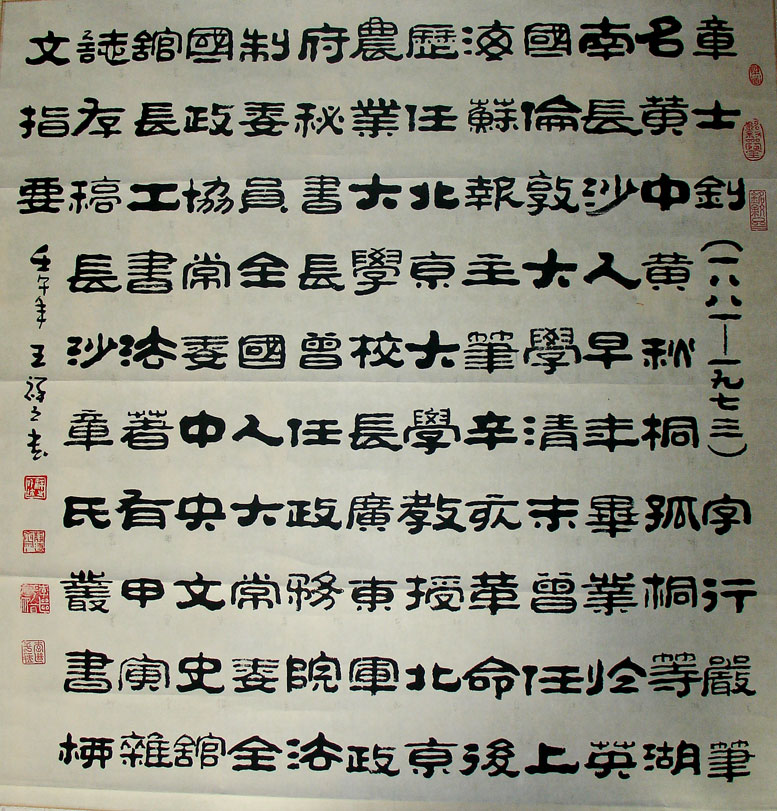 章士釗(一八八一—一九七三)字行嚴筆
名黄中黄秋桐孤桐等湖
南長沙人早年畢業於英
國倫敦大學清末曾任上
海蘇報主筆辛亥革命後
歷任北京大學教授北京
農業大學校長廣東軍政
府秘書長曾任政務院法
制委員全國人大常委全
國政協常委中央文史舘
舘長工書法著有甲寅雜
誌存稿長沙章氏叢書柳
文指要
壬午年王祥之书